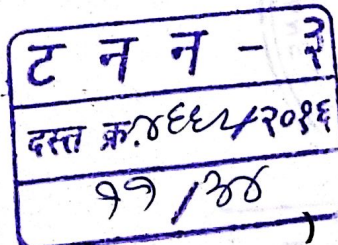 ट न न - ३
दस्त क्र.४६६५/२०१६
११/३४